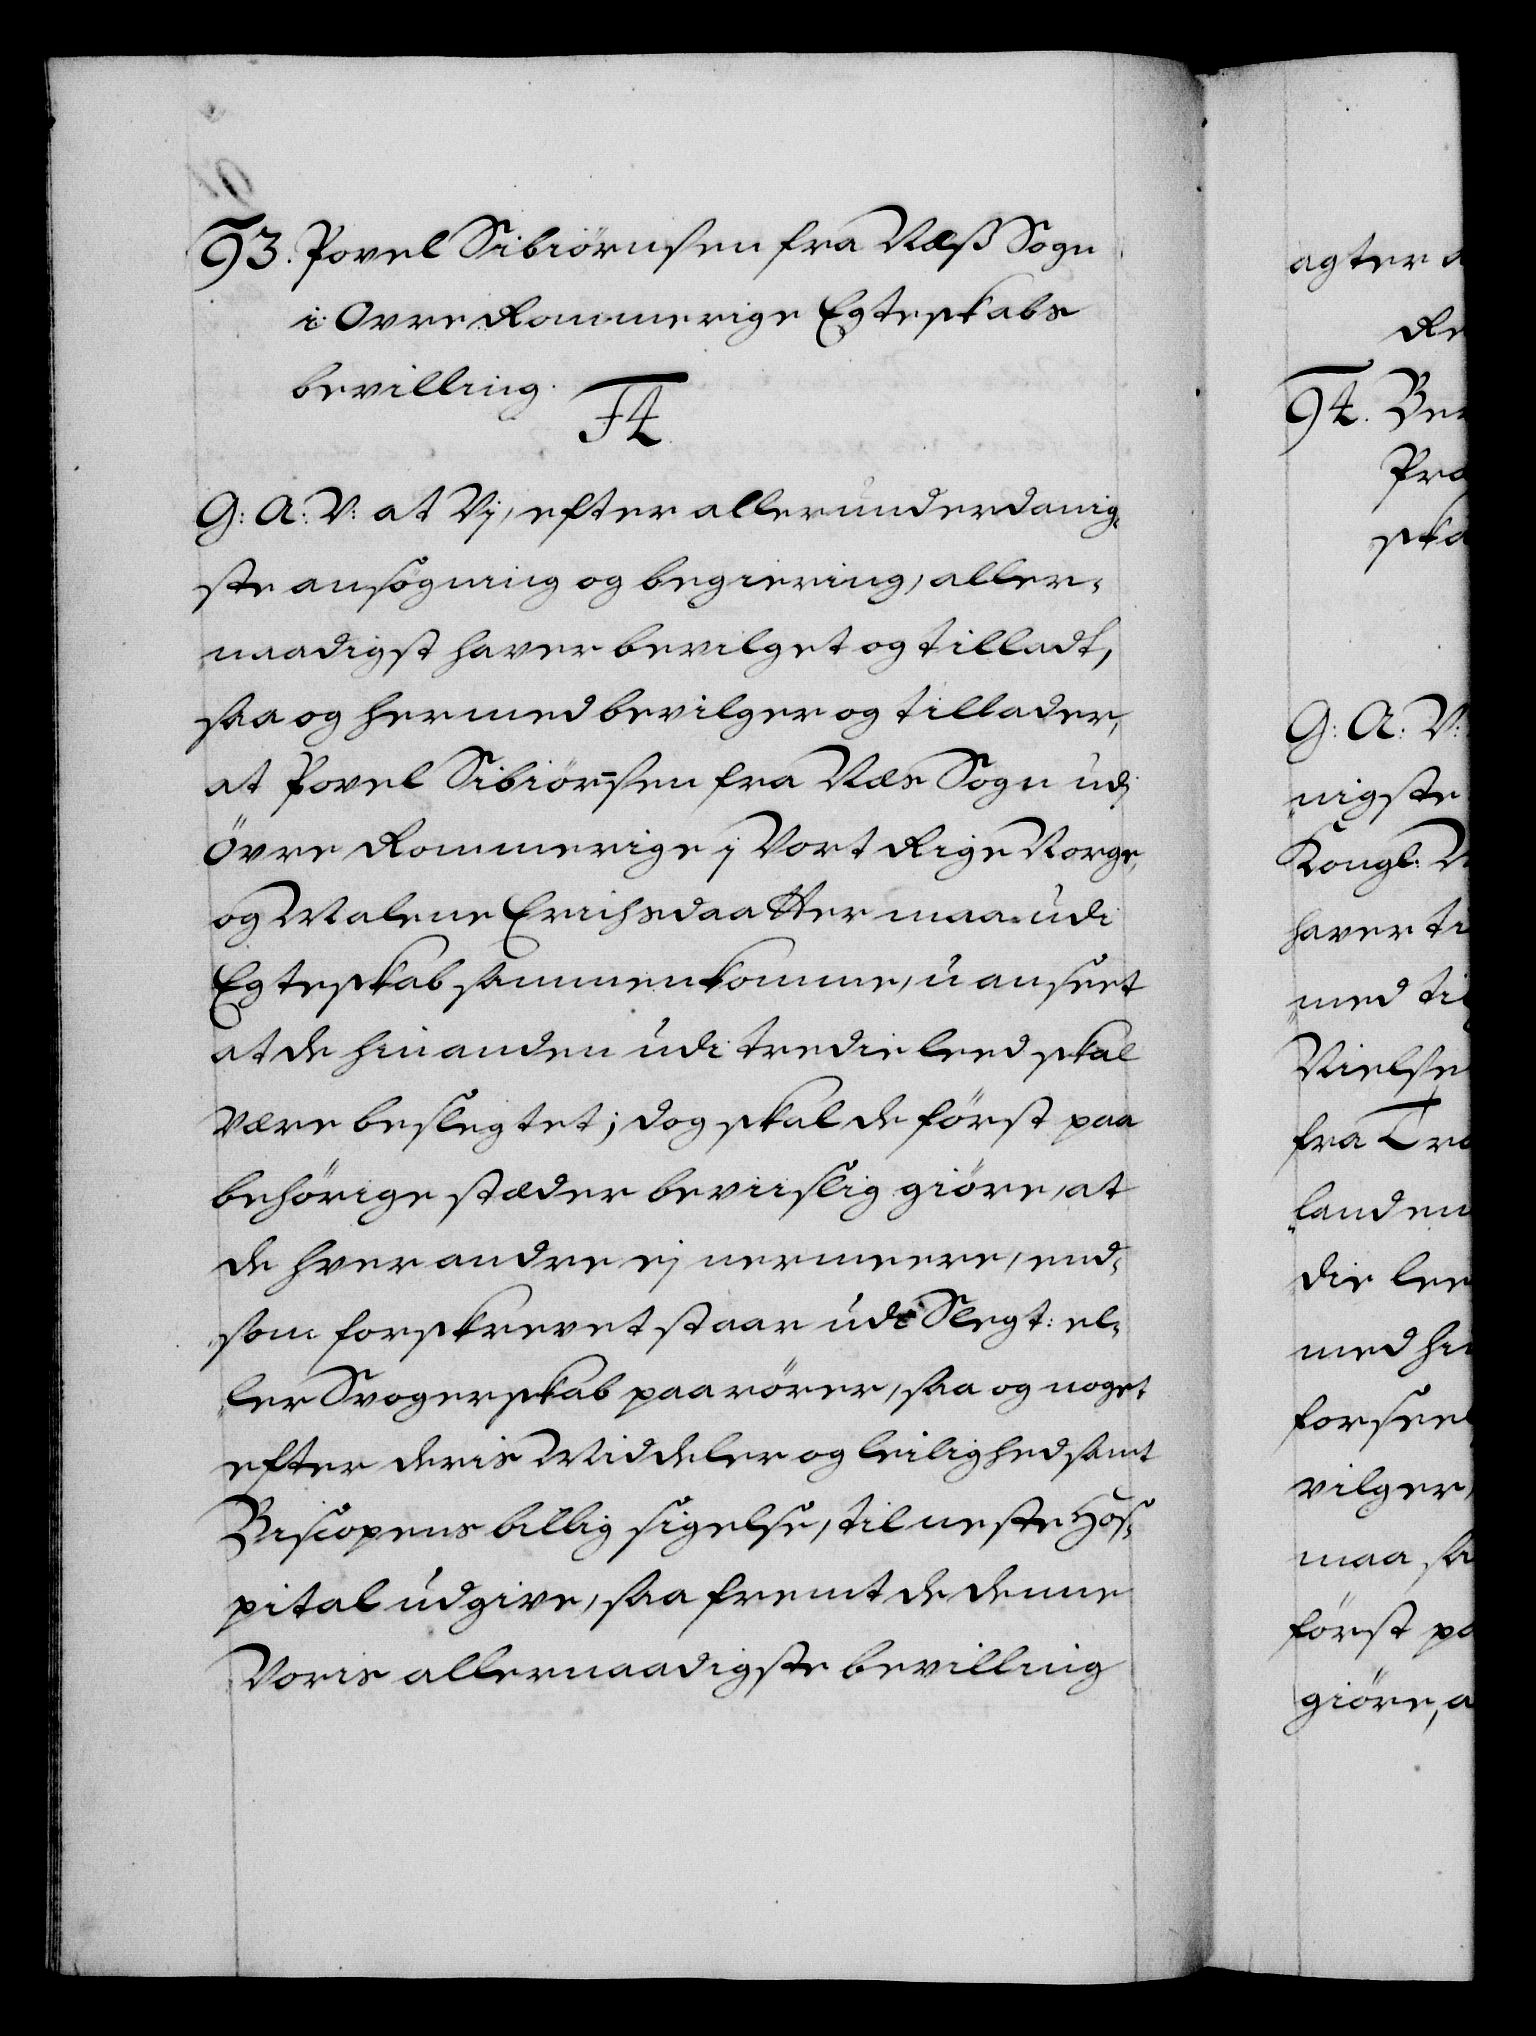 93. Povel Sibiörnsen fra Næss Sogn
i Ovre Rommerige Egteskabs
bevilling.
F4
G: A: V: at Vj, efter allerunderdanig-
ste ansögning og begiering, aller-
naadigst haver bevilget og tilladt,
saa og hermed bevilger og tillader,
at Povel Sibiörnsen fra Næs Sogn udj
Övre Rommerige j Vort Rige Norge,
og Malene Erichsdaatter maa udi
Egteskab sammenkomme, uanseet
at de hinanden udi tredie leed skal
være beslegtet; dog skal de först paa
behörige stæder beviislig giöre, at
de hver andre ej nermeere, end-
som forskrevet staar udi Slegt: el-
ler Svogerskab paarörer, saa og noget
efter deris Middeler og leilighed samt
Biscopens billig sigelse, til neste Hos-
pital udgive, saafremt de denne
Voris allernaadigste bevilling
agter
94.
G: A: V:
nigste
Kongl:
haver
med
Nielse
fra
landen
die
med
forsee
vilger,
maa
först
giöre,